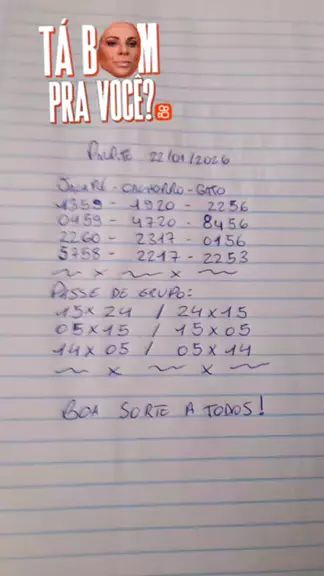 TÁ BOM
PRA VOCÊ?
PALPITE 22/01/2026
JACARÉ - CACHORRO - GATO
1359 - 1920 - 2256
0459 - 4720 - 8456
2260 - 2317 - 0156
5758 - 2217 - 2253
~ x ~ x ~
PASSE DE GRUPO:
15 x 24 / 24 x 15
05 x 15 / 15 x 05
14 x 05 / 05 x 14
~ x ~ x ~
BOA SORTE A TODOS!